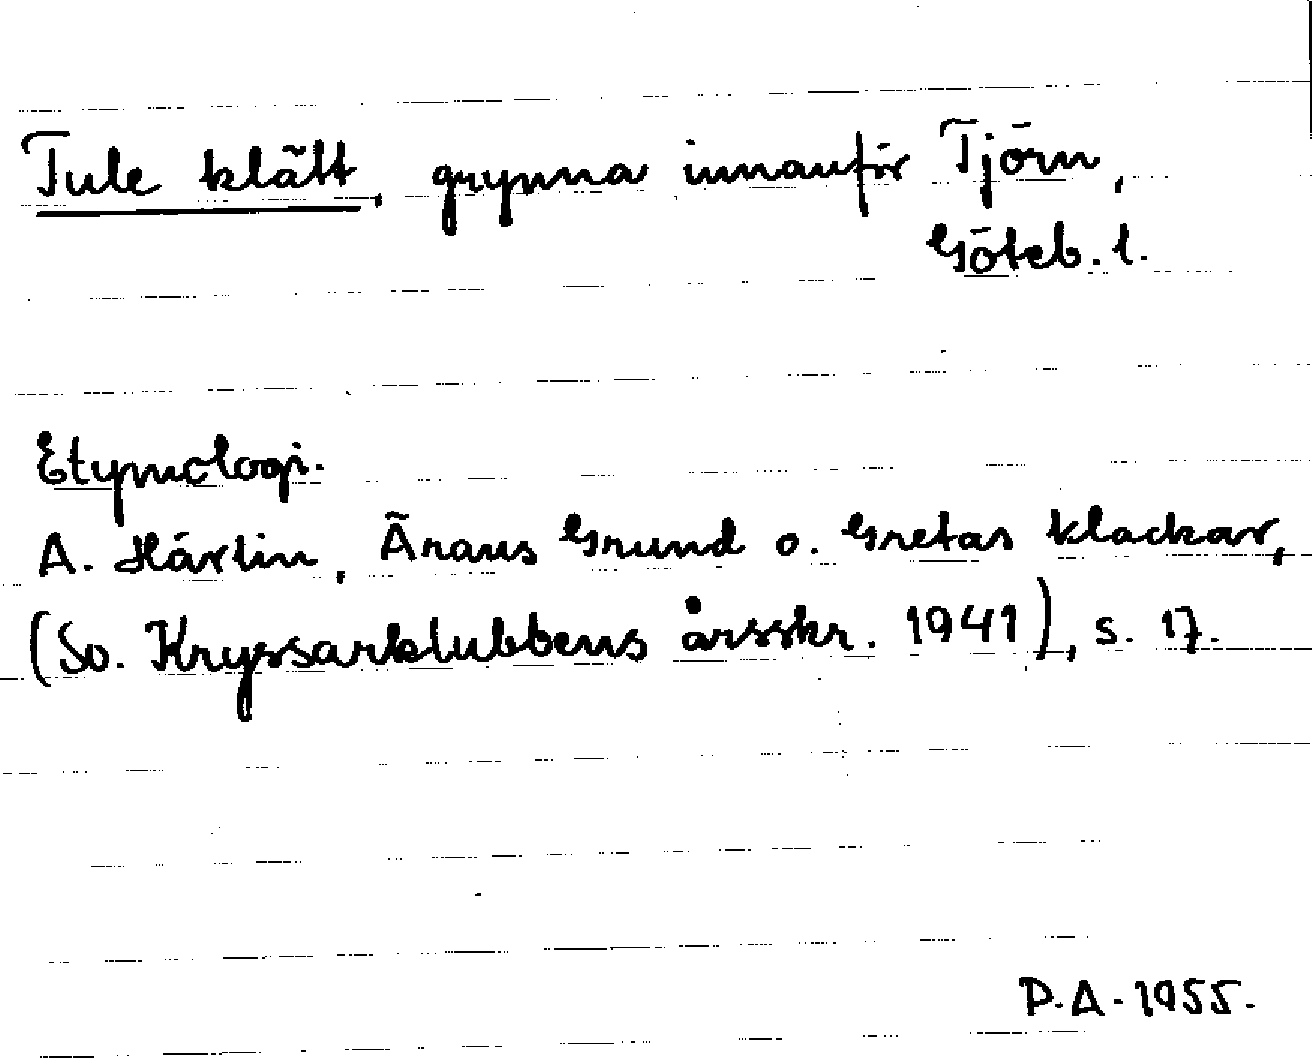 Tule klätt, grynna innanför Tjörn,
Göteb. l.
Etymologi.
A. Härlin, Ärans Grund o. Gretas klackar,
(Sv. Kryssarklubbens årsskr. 1941), s. 17.
P.A. 1955.